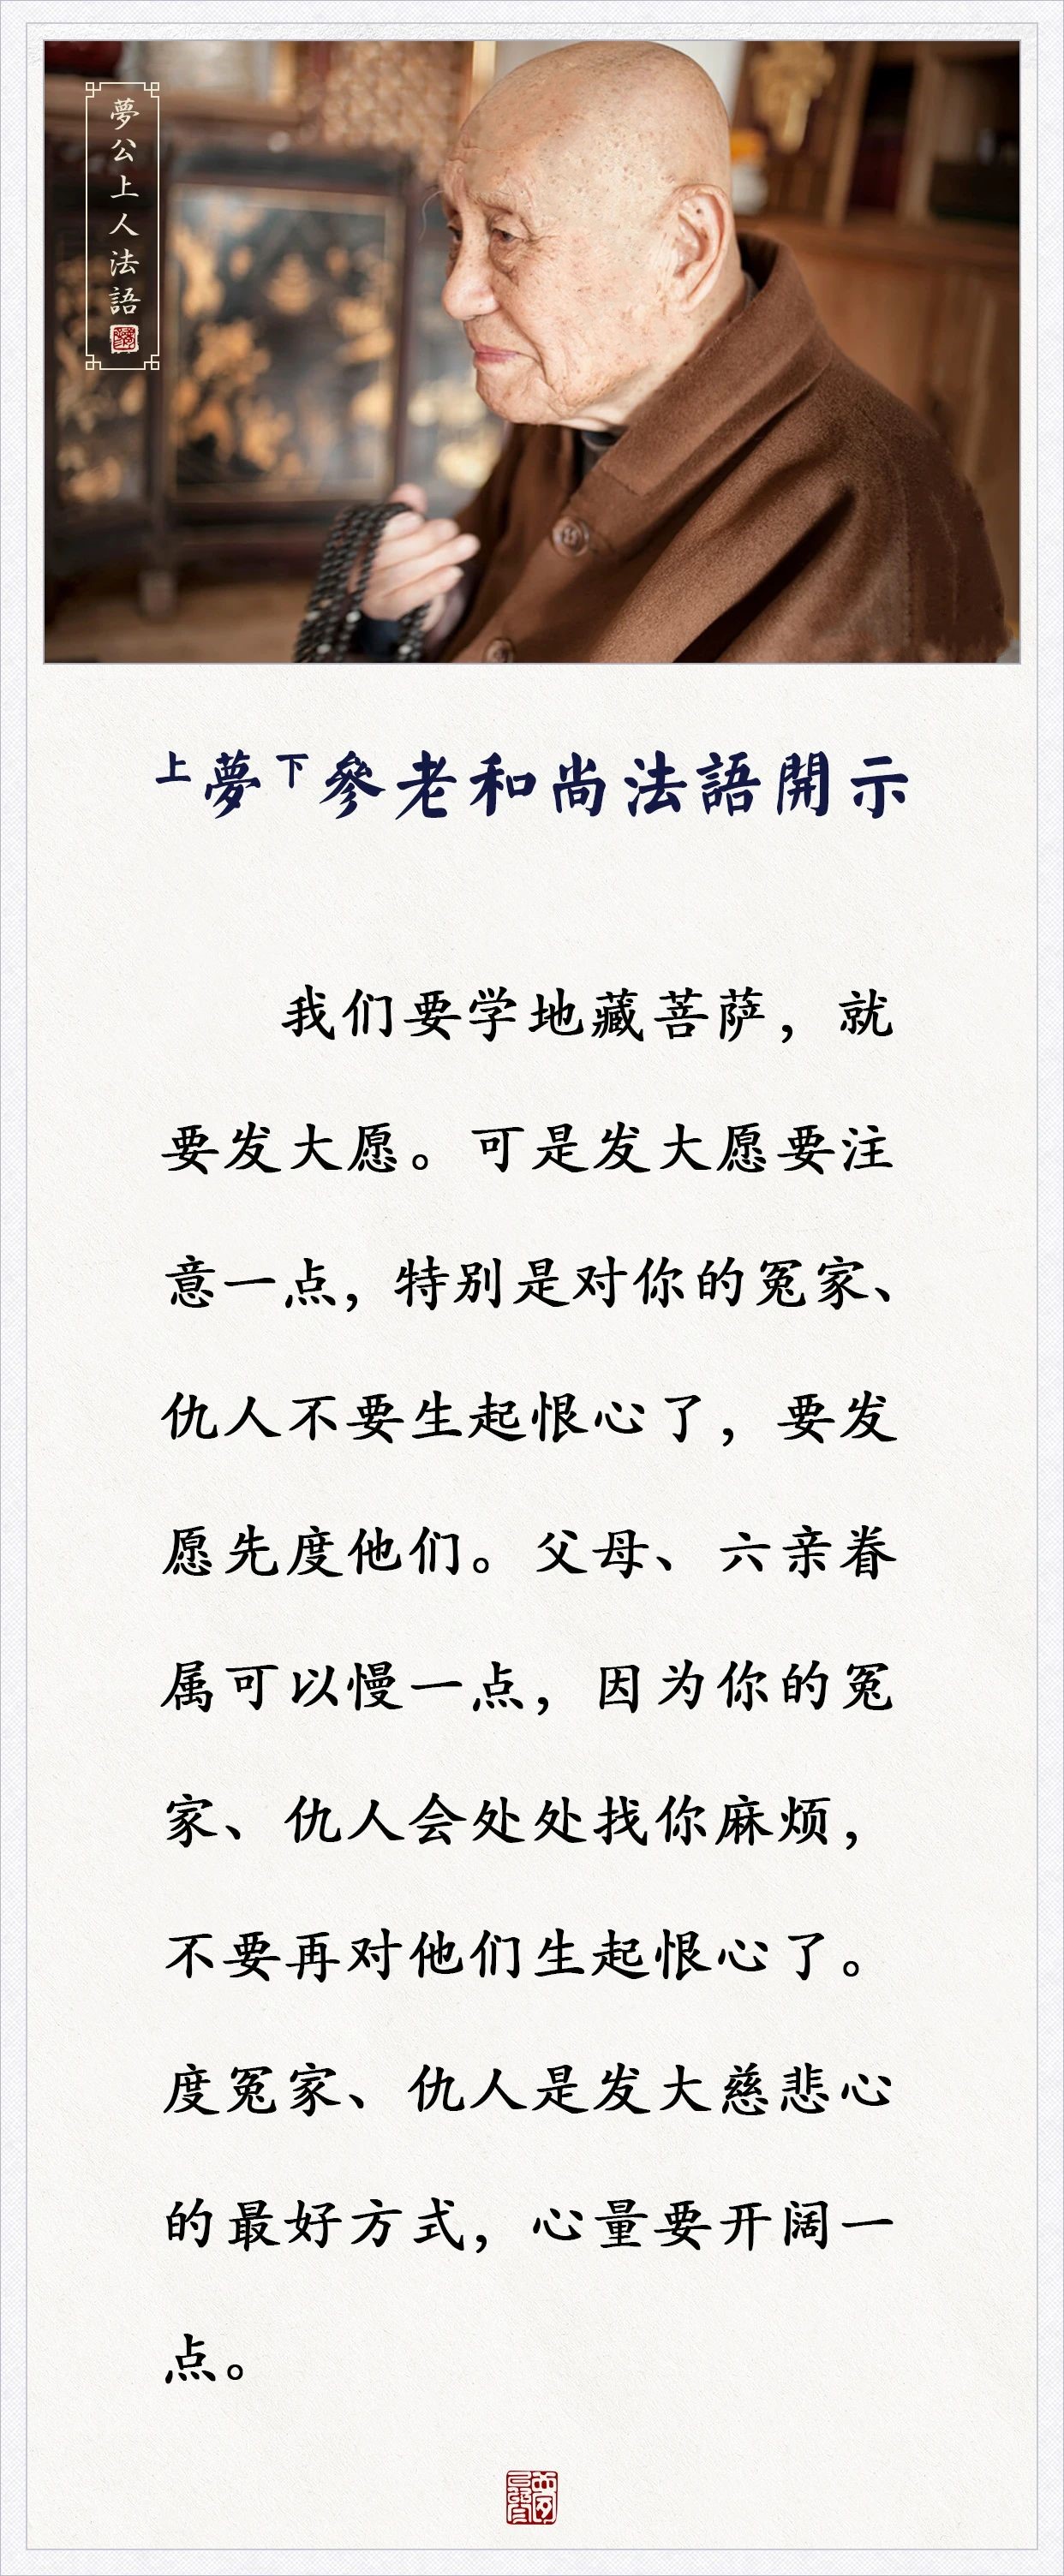 夢公上人法語
上夢下參老和尚法語開示
我们要学地藏菩萨，就
要发大愿。可是发大愿要注
意一点，特别是对你的冤家、
仇人不要生起恨心了，要发
愿先度他们。父母、六亲眷
属可以慢一点，因为你的冤
家、仇人会处处找你麻烦，
不要再对他们生起恨心了。
度冤家、仇人是发大慈悲心
的最好方式，心量要开阔一
点。